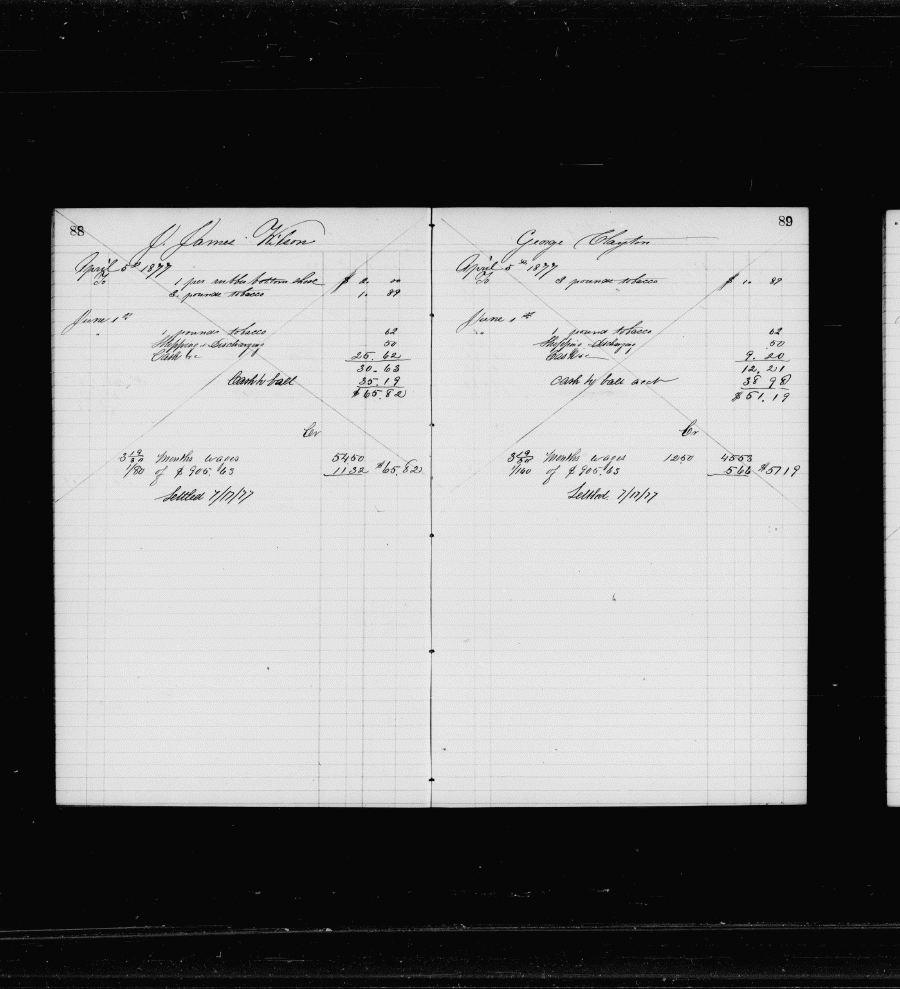 88
J. James Wilson
April 5th 1877
To 1 per rubber bottom shoes $ 2. 00
3 pounds tobacco 1. 89
June 1st
" 1 pounds tobacco 62
Shipping & Discharging 50
Cash &c 25. 62
30. 63
Cash to ball 35. 19
$ 65. 82
Cr
3 19/30 Months wages 5450
1/80 of $ 905.63 1132 $65 82
Settled 7/17/77
89
George Clayton
April 5th 1877
To 3 pounds tobacco $ 1. 89
June 1st
" 1 pound tobacco 62
Shipping & Discharging .50
Cash &c 9. 20
12. 21
Cash to ball acct 38 98
$ 51. 19
Cr
3 19/30 Months wages 1250 4553
1/160 of $ 905.63 566 $51 19
Settled 7/17/77